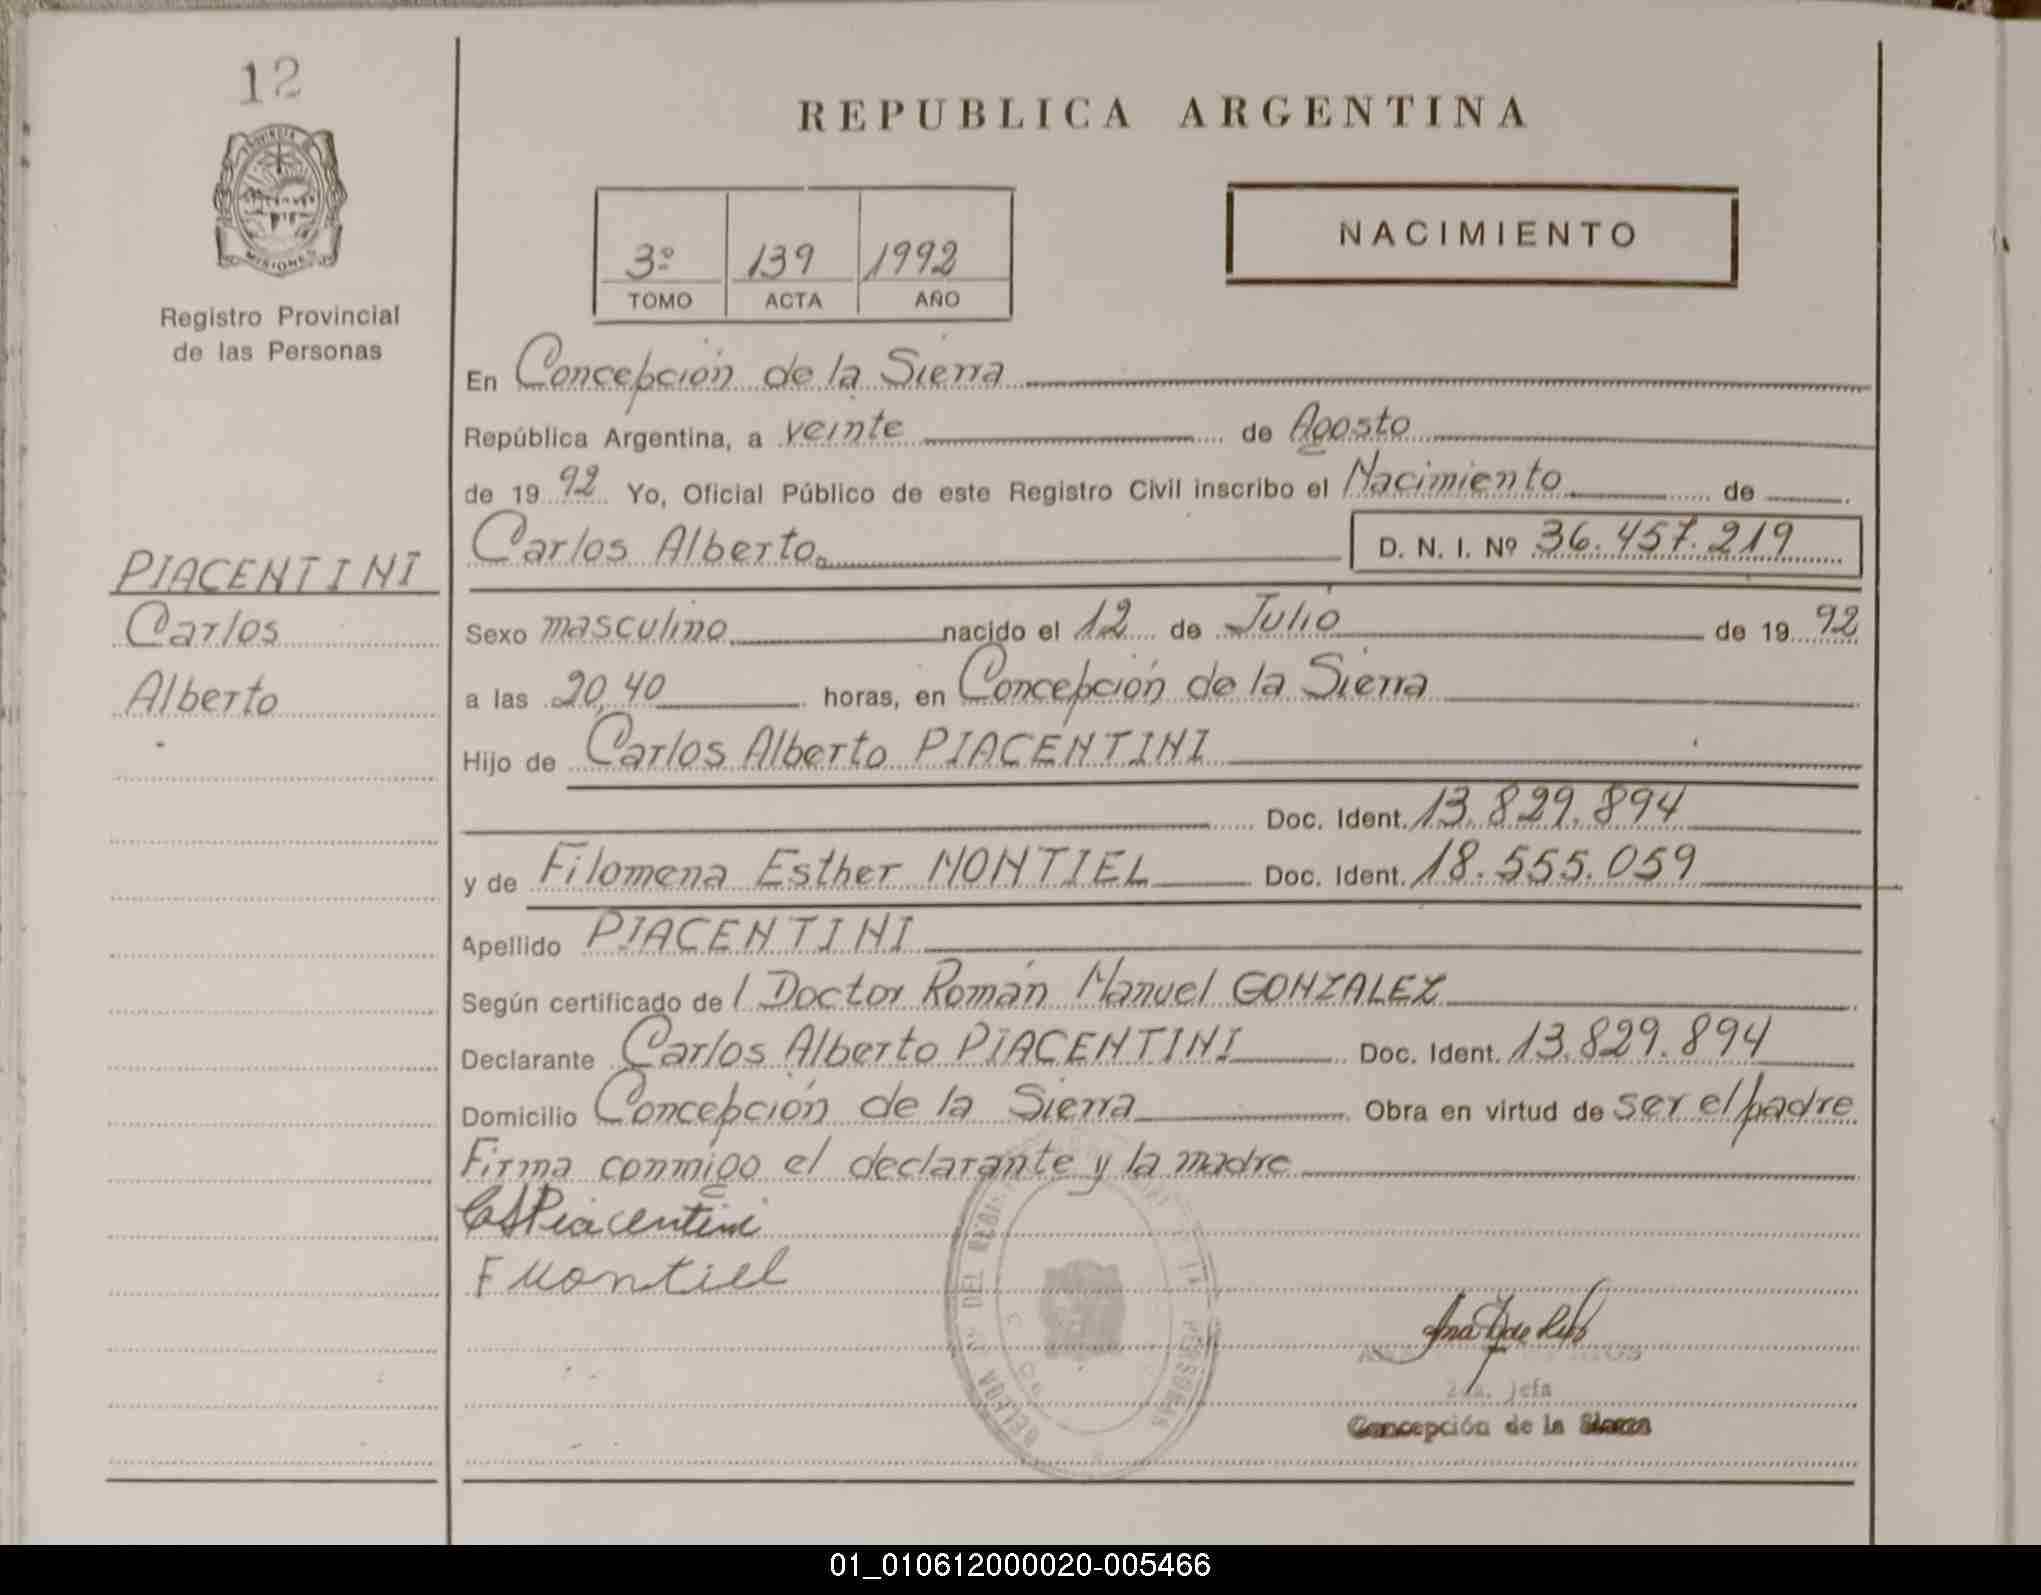 12
PROVINCIA
MISIONES
Registro Provincial
de las Personas
PIACENTINI
Carlos
Alberto
REPUBLICA ARGENTINA
3º 139 1992
TOMO ACTA AÑO
NACIMIENTO
En Concepción de la Sierra
República Argentina, a veinte de Agosto
de 19 92 Yo, Oficial Público de este Registro Civil inscribo el Nacimiento de
Carlos Alberto D. N. I. Nº 36.457.219
Sexo masculino nacido el 12 de Julio de 19 92
a las 20,40 horas, en Concepción de la Sierra
Hijo de Carlos Alberto PIACENTINI
Doc. Ident. 13.829.894
y de Filomena Esther MONTIEL Doc. Ident. 18.555.059
Apellido PIACENTINI
Según certificado de l Doctor Román Manuel GONZALEZ
Declarante Carlos Alberto PIACENTINI Doc. Ident. 13.829.894
Domicilio Concepción de la Sierra Obra en virtud de ser el padre
Firma conmigo el declarante y la madre
CAPiacentini
F Montiel
DEL PERSONAS
Jefa
Concepción de la Sierra
01_010612000020-005466